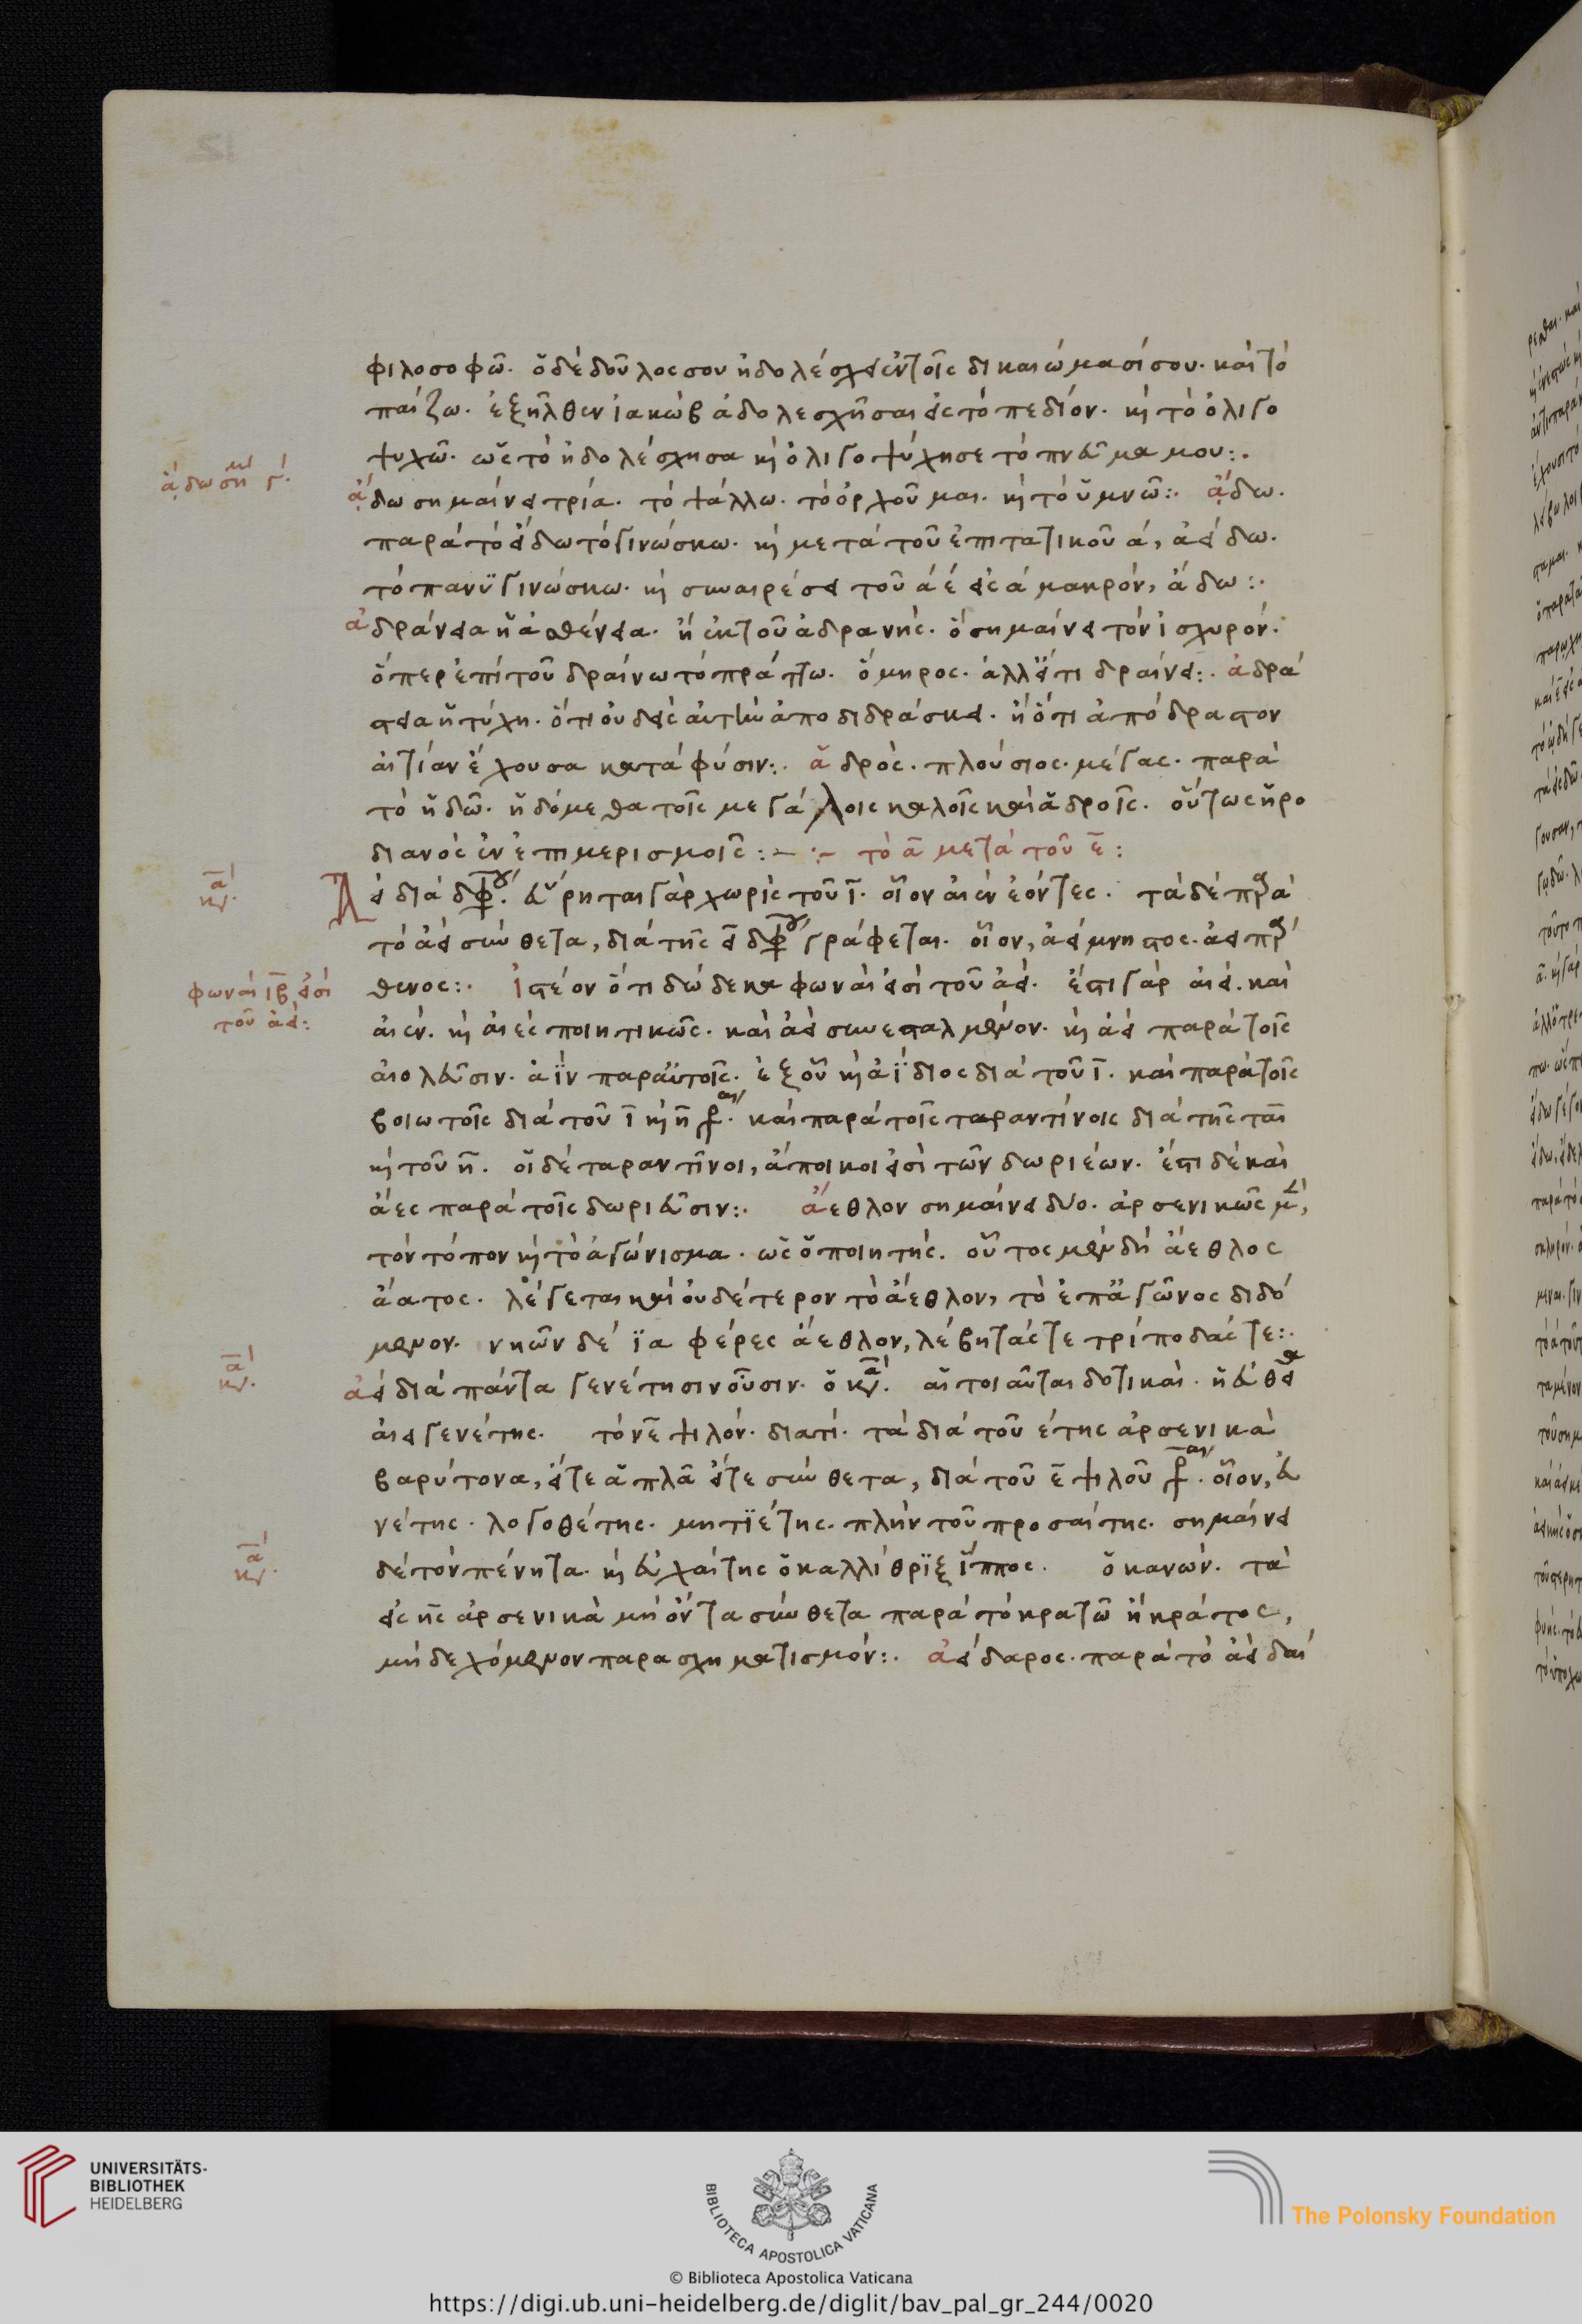 φιλοσοφῶ. ὁ δὲ δοῦλος σου ἠδολέσχει ἐν τοῖς δικαιώμασί σου. καὶ τὸ
παίζω. ἐξῆλθεν ἰακὼβ ἀδολεσχῆσαι εἰς τὸ πεδίον. κὶ τὸ ὀλιγο
ψυχῶ. ὡς τὸ ἠδολέσχησα κὶ ὀλιγοψύχησε τὸ πνεῦμα μου:.
ᾄδω σημ γ΄.
ᾄδω σημαίνει τρία. τὸ ψάλλω. τὸ ὀρχοῦμαι. κὶ τὸ ὑμνῶ:. ᾄδω.
παρὰ τὸ εἴδω τὸ γινώσκω. κὶ μετὰ τοῦ ἐπιτατικοῦ ά, ἀείδω.
τὸ πανὺ γινώσκω. κὶ συναιρέσει τοῦ ά έ εἰς ά μακρόν, άδω:.
ἀδράνεια ἡ ἀσθένεια. ἢ ἐκ τοῦ ἀδρανὴς. ὃ σημαίνει τὸν ἰσχυρόν.
ὅπερ ἐπὶ τοῦ δραίνω τὸ πράττω. ὅμηρος. ἀλλ' ὅτι δραίνει:. ἀδρά
στεια ἡ τύχη. ὅτι οὐδεὶς αὐτὴν ἀποδιδράσκει. ἢ ὅτι ἀπόδραστον
αἰτίαν ἔχουσα κατὰ φύσιν:. ἁδρὸς. πλούσιος. μέγας. παρὰ
τὸ ἥδω. ἡδόμεθα τοῖς μεγάλοις καλοῖς καὶ ἁδροῖς. οὕτως ἡρο
διανὸς ἐν ἐπιμερισμοῖς:– ·– τὸ ᾱ μετὰ τοῦ ε̄:
κν ᾱ.
Ἀεὶ διὰ διφ. εὕρηται γὰρ χωρὶς τοῦ ῑ. οἷον αἰὲν ἐόντες. τὰ δὲ παρὰ
τὸ ἀεὶ σύνθετα, διὰ τῆς ει διφ γράφεται. οἷον, ἀείμνηστος. ἀειπάρ
φωναὶ ιβ εἰσὶ
τοῦ ἀεί:
θενος:. ἰστέον ὅτι δώδεκα φωναὶ εἰσὶ τοῦ ἀεί. ἔστι γὰρ αἰεί. καὶ
αἰὲν. κὶ αἰὲς ποιητικῶς. καὶ ἀεὶ συνεσταλμένον. κὶ ἀεὶ παρὰ τοῖς
αἰολεῦσιν. ἀῒν παραὐτοῖς. ἐξ οὗ κὶ ἀΐδιος διὰ τοῦ ῑ. καὶ παρὰ τοῖς
βοιωτοῖς διὰ τοῦ ῑ κὶ η̄. καὶ παρὰ τοῖς ταραντίνοις διὰ τῆς ται
κὶ τοῦ η̄. οἱ δὲ ταραντῖνοι, ἄποικοι εἰσὶ τῶν δωριέων. ἔστι δὲ καὶ
ἀὲς παρὰ τοῖς δωριεῦσιν:. ἄεθλον σημαίνει δύο. ἀρσενικῶς μὲν,
τὸν τόπον κὶ τὸ ἀγώνισμα. ὡς ὁ ποιητής. οὗτος μὲν δὴ ἄεθλος
ἄατος. λέγεται καὶ οὐδέτερον τὸ ἄεθλον, τὸ ἐπ' ἀγῶνος διδό
μενον. νηῶν δέ ϊα φέρες ἄεθλον, λέβητάς τε τρίποδάς τε:.
κν ᾱ.
ἀεὶ διὰ πάντα γενέτησιν οὖσιν. ὁ κν ᾱ. αἱ τοιαῦται δοτικαὶ. ἡ εὐθεῖα
αἰειγενέτης. τὸ νε̄ ψιλόν. διατί. τὰ διὰ τοῦ έτης ἀρσενικὰ
βαρύτονα, εἴτε ἁπλᾶ εἴτε σύνθετα, διὰ τοῦ ε̄ ψιλοῦ. οἷον, εὐ
νέτης. λογοθέτης. μητϊέτης. πλὴν τοῦ προσαίτης. σημαίνει
κν ᾱ.
δὲ τὸν πένητα. κὶ εὐχαίτης ὁ καλλίθρϊξ ἵππος. ὁ κανών. τὰ
εἰς ης ἀρσενικὰ μὴ ὄντα σύνθετα παρὰ τὸ κρατῶ ἢ κράτος,
μὴ δεχόμενον παρασχηματισμόν:. ἀείδαρος. παρὰ τὸ ἀεὶ δαί
UNIVERSITÄTS-
BIBLIOTHEK
HEIDELBERG
BIBLIOTECA APOSTOLICA VATICANA
The Polonsky Foundation
© Biblioteca Apostolica Vaticana
https://digi.ub.uni-heidelberg.de/diglit/bav_pal_gr_244/0020